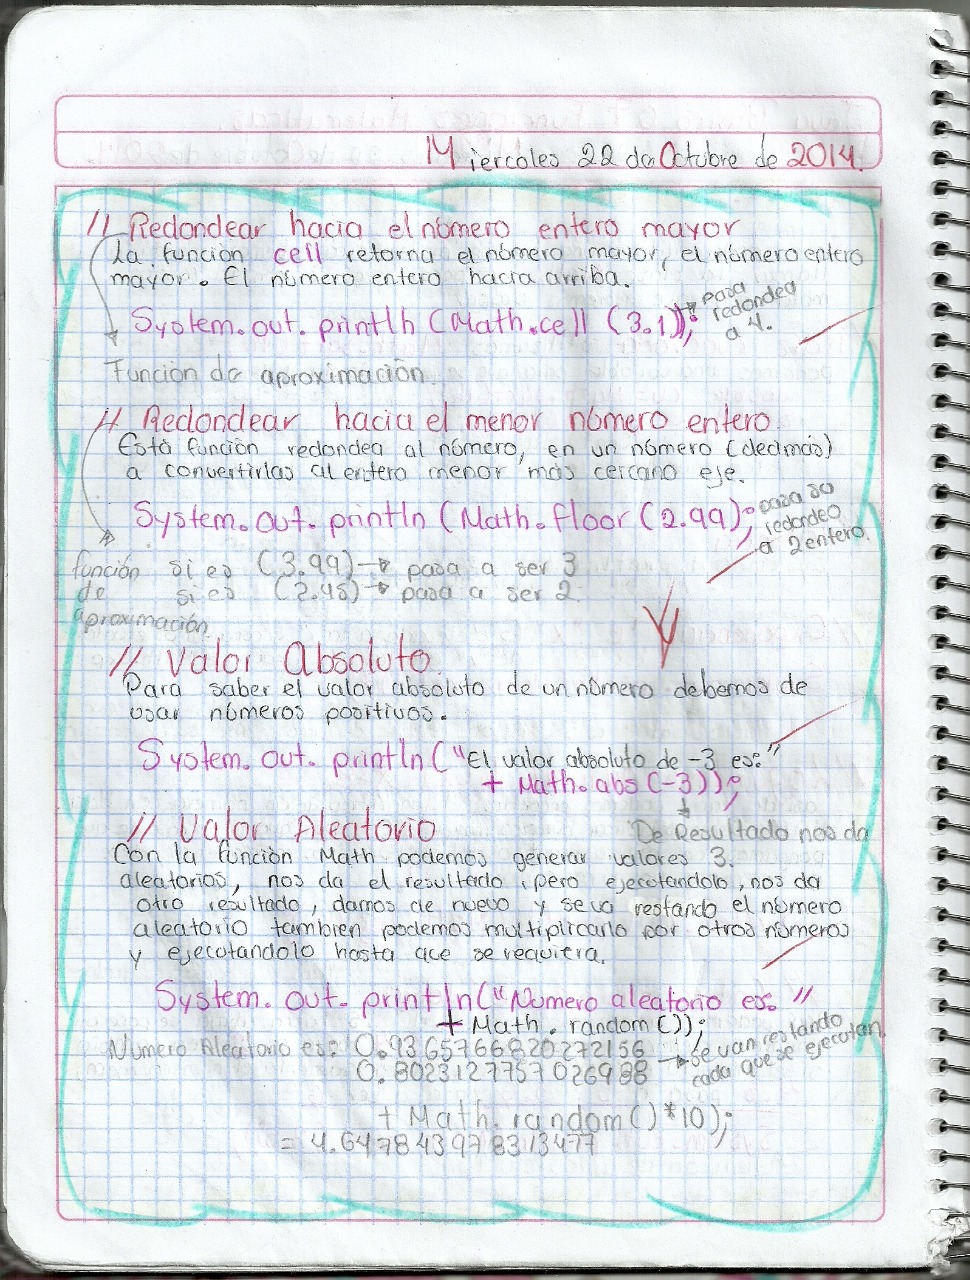 Miercoles 22 de Octubre de 2014.
// Redondear hacia el número entero mayor
La función cell retorna el número mayor, el número entero
mayor. El número entero hacia arriba.
System.out.println (Math.cell (3.1)); pasa
redondea
a 4.
Función de aproximación.
// Redondear hacia el menor número entero
Está función redondea al número, en un número (decimas)
a convertirlas al entero menor más cercano eje.
System.out.println (Math.floor (2.99); pasa so
redondeo
a 2 entero.
función si es (3.99) → pasa a ser 3
de si es (2.45) → pasa a ser 2.
aproximación
// Valor Absoluto.
Para saber el valor absoluto de un número debemos de
usar números positivos.
System.out.println("El valor absoluto de -3 es:"
+ Math.abs(-3));
// Valor Aleatorio De Resultado nos da
Con la función Math podemos generar valores 3.
aleatorios, nos da el resultado, pero ejecutandolo, nos da
otro resultado, damos de nuevo y se va restando el número
aleatorio tambien podemos multiplicarlo por otros números
y ejecutandolo hasta que se requiera.
System.out.println("Numero aleatorio es: "
+ Math.random());
Numero Aleatorio es: 0.9365766820272156 → se van restando
0.8023127757026988 cada que se ejecutan
+ Math.random()*10);
= 4.647843978313477